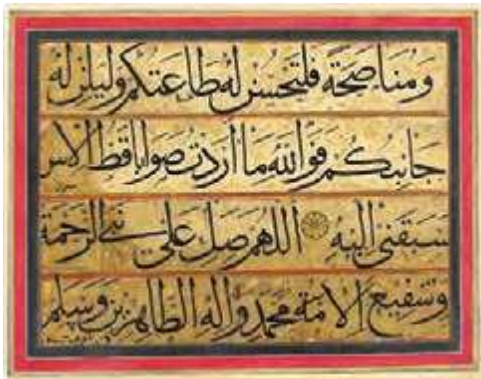 ومناصحة فلتحسن له طاعتكم وليلن له
جانبكم فوالله ما اردت صوابا قط الا س
سبقني اليه اللهم صل على نبي الرحمة
وشفيع الامة محمد واله الطاهرين وسلم